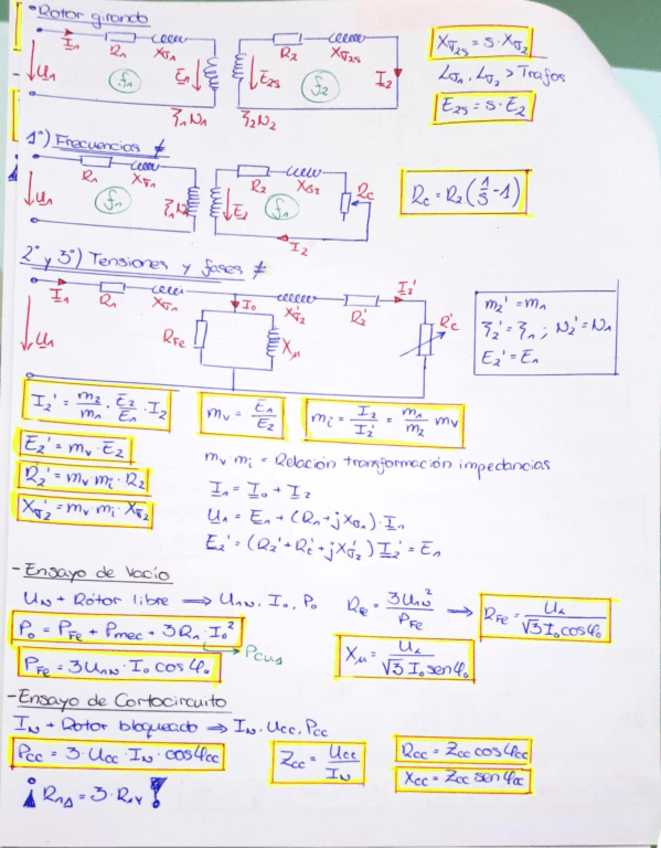 • Rotor girando
I₁ R₁ Xσ₁ R₂ Xσ₂s
U₁ f₁ E₁ E₂s f₂ I₂
ξ₁N₁ ξ₂N₂
Xσ₂s = s·Xσ₂
Lσ₁, Lσ₂ > Trafos
E₂s = s·E₂
1º) Frecuencias ≠
R₁ Xσ₁ R₂ Xσ₂ Rc
U₁ f₁ ξ₁N₁ E₂ f₁
I₂
Rc = R₂ (1/s - 1)
2º y 3º) Tensiones y fases ≠
I₁ R₁ Xσ₁ I₀ X'σ₂ R₂' I₂'
U₁ RFe Xμ R'c
m₂' = m₁
ξ₂' = ξ₁ ; N₂' = N₁
E₂' = E₁
I₂' = m₂/m₁ · E₂/E₁ · I₂
mv = E₁/E₂
mi = I₂/I₂' = m₁/m₂ mv
E₂' = mv·E₂
R₂' = mv·mi·R₂
Xσ₂' = mv·mi·Xσ₂
mv·mi = Relación transformación impedancias
I₁ = I₀ + I₂
U₁ = E₁ + (R₁+jXσ₁)·I₁
E₂' = (R₂'+Rc'+jXσ₂') I₂' = E₁
- Ensayo de Vacío
UN + Rotor libre ⟹ U₁N, I₀, P₀
RFe = 3U₁N²/PFe → RFe = UL/(√3 I₀ cosφ₀)
P₀ = PFe + Pmec + 3R₁·I₀²
→ Pcu₁
PFe = 3U₁N·I₀ cosφ₀
Xμ = UL/(√3 I₀ senφ₀)
- Ensayo de Cortocircuito
IN + Rotor bloqueado ⇒ IN, Ucc, Pcc
Pcc = 3·Ucc·IN·cosφcc
Zcc = Ucc/IN
Rcc = Zcc cosφcc
Xcc = Zcc senφcc
¡ R₁Δ = 3·R₁Y !